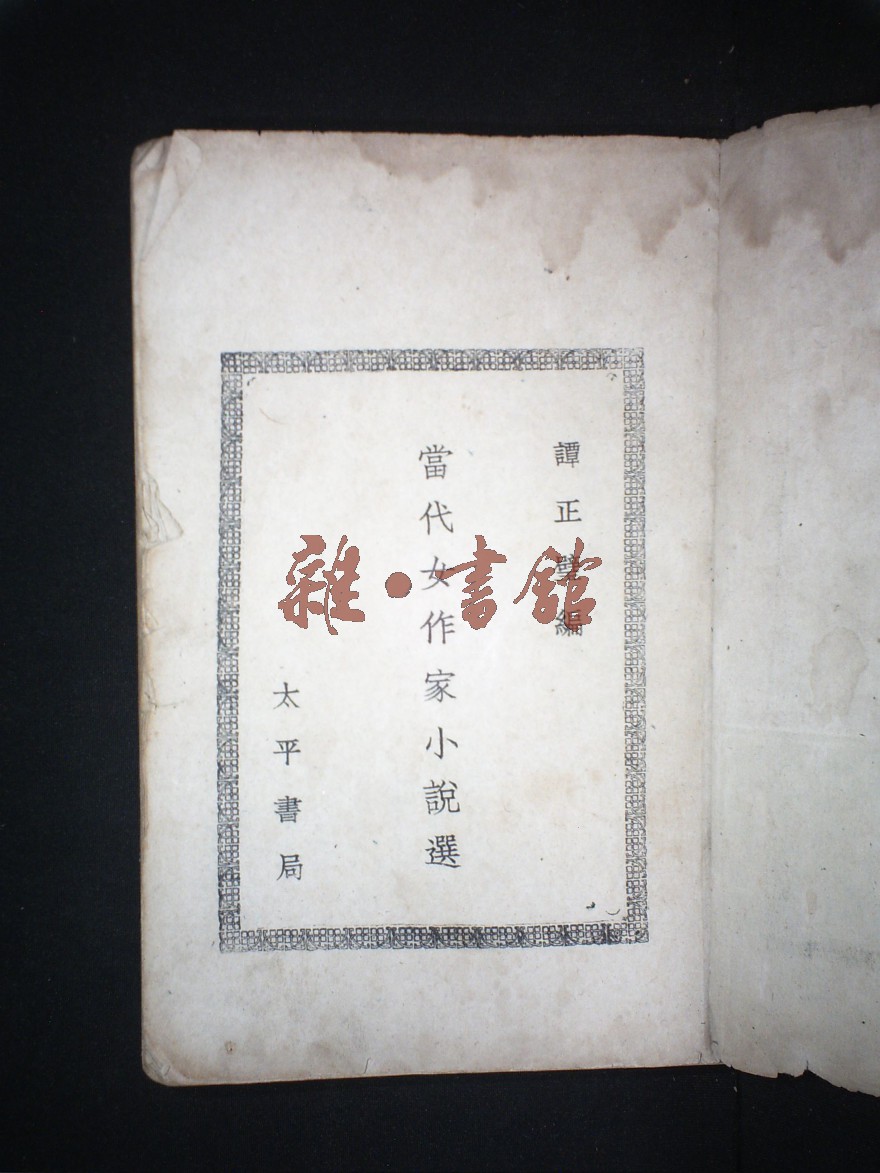 譚正璧編
當代女作家小說選
太平書局
雜·書館